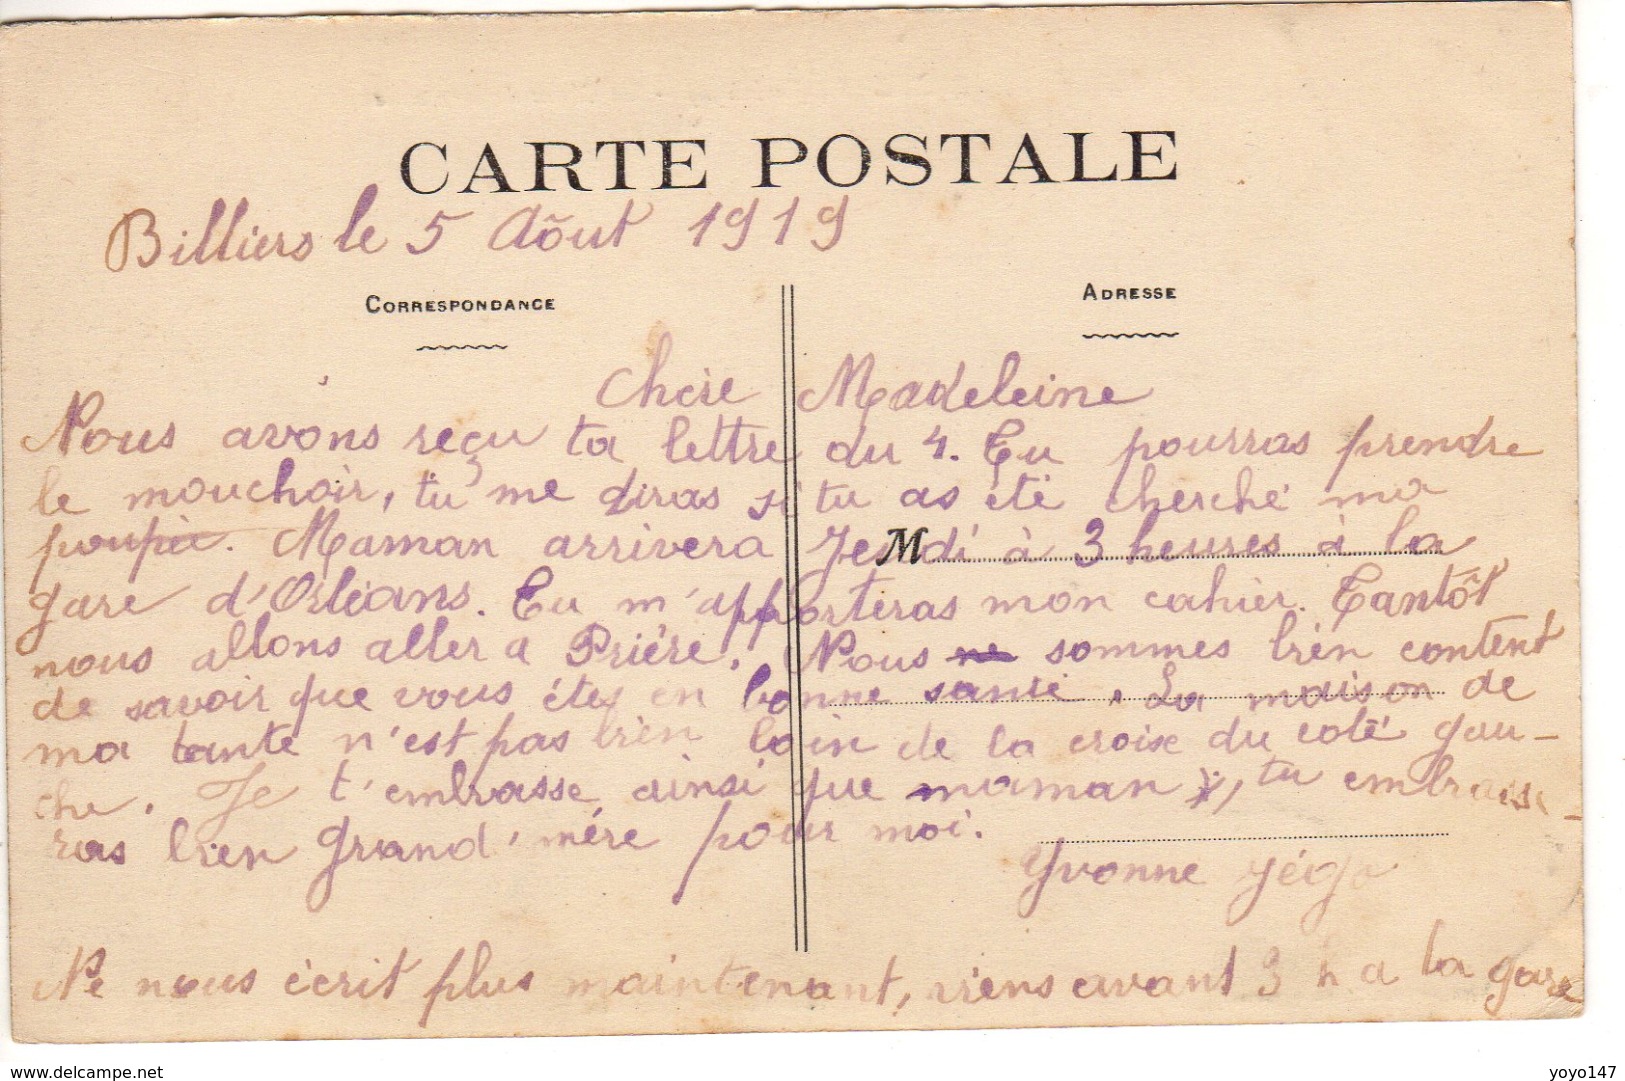 CARTE POSTALE
Billiers le 5 Aôut 1919
CORRESPONDANCE
ADRESSE
Chère Madeleine
Nous avons reçu ta lettre du 4. Tu pourras prendre
le mouchoir, tu me diras si tu as été cherché ma
poupée. Maman arrivera Jeudi à 3 heures à la
M
gare d'Orléans. Tu m'apporteras mon cahier. Tantôt
nous allons aller a Prière. Nous ne sommes bien content
de savoir que vous étes en bonne santé. La maison de
ma tante n'est pas bien loin de la croix du coté gau-
che. Je t'embrasse ainsi que maman, tu embrasse-
ras bien Grand'mére pour moi.
Yvonne Jégo
Ne nous écrit plus maintenant, viens avant 3 h a la gare
delcampe.net
yoyo147